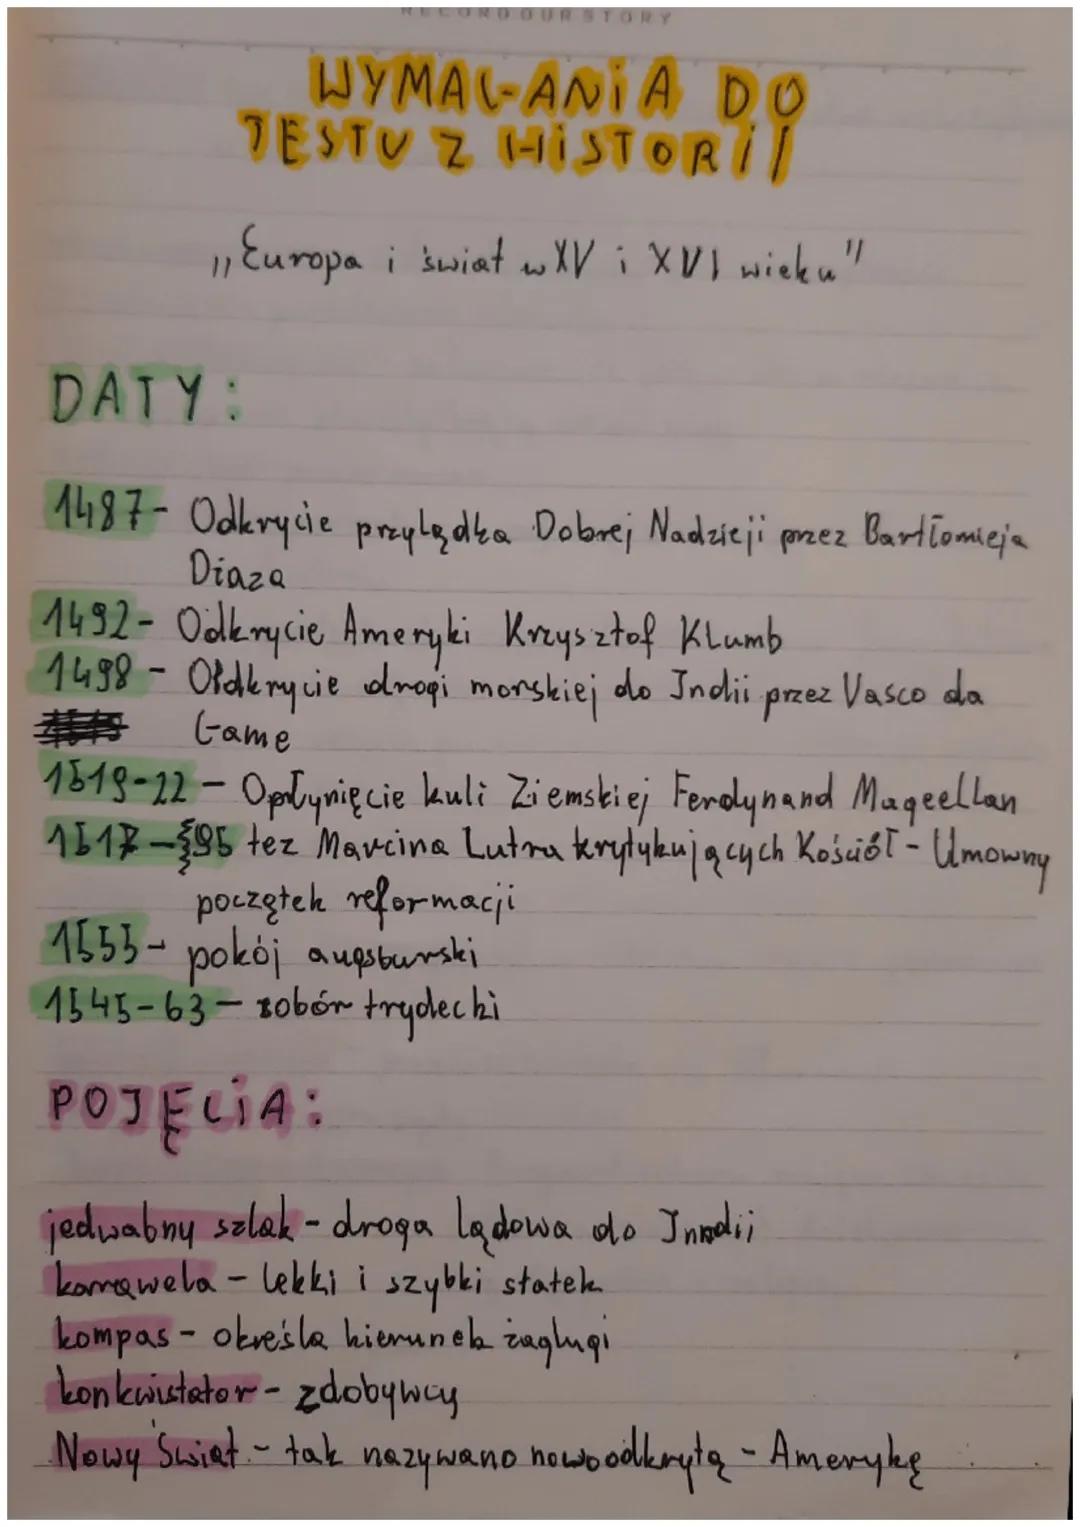 RECORD OUR STORY
WYMAGANIA DO
TESTU Z HISTORII
„Europa i świat w XV i XVI wieku"
DATY:
1487- Odkrycie przylądka Dobrej Nadzieji przez Bartłomieja
Diaza
1492- Odkrycie Ameryki Krzysztof KLumb
1498 - Odkrycie drogi morskiej do Indii przez Vasco da
Game
1519-22 - Opłynięcie kuli Ziemskiej Ferdynand Mageellan
1517 - 95 tez Marcina Lutra krytykujących Kościół - Umowny
początek reformacji
1555- pokój augsburski
1545-63 - sobór trydecki
POJĘCIA:
jedwabny szlak - droga lądowa do Indii
karawela - lekki i szybki statek
kompas - określa kierunek żaglugi
konkwistator - zdobywcy
Nowy Świat - tak nazywano nowoodkrytą - Amerykę